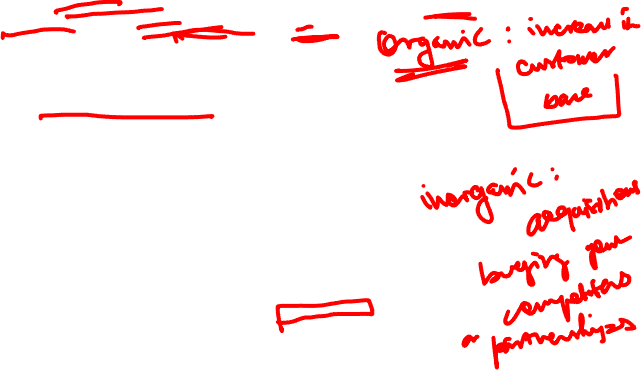 organic : increase in
customer
base
inorganic :
acquisitions
buying your
competitors
or partnerships